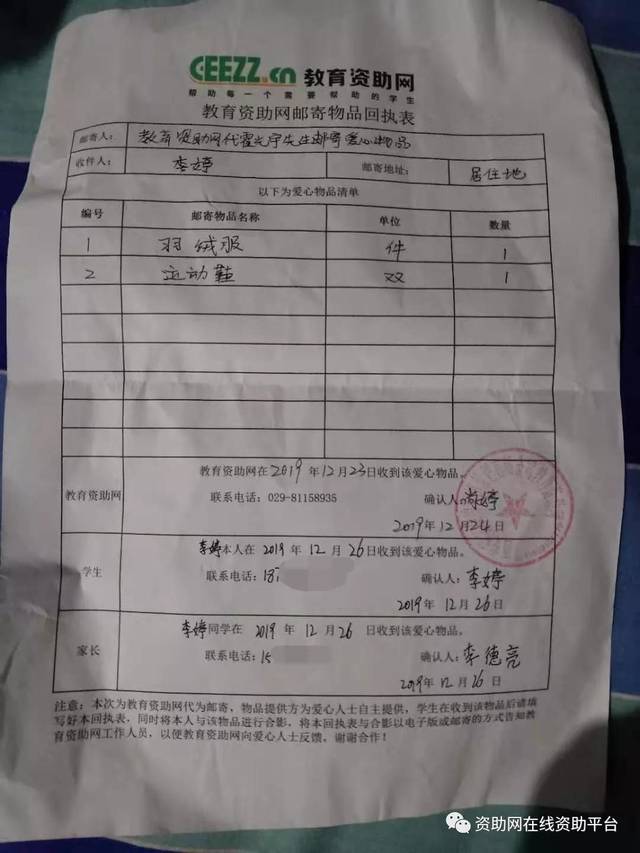 CEEZZ.cn 教育资助网
帮助每一个需要帮助的学生
教育资助网邮寄物品回执表
邮寄人： 教育资助网代霍光宇先生邮寄爱心物品
收件人： 李婷 邮寄地址： 居住地
以下为爱心物品清单
编号 邮寄物品名称 单位 数量
1 羽绒服 件 1
2 运动鞋 双 1
教育资助网在2019年12月23日收到该爱心物品。
教育资助网 联系电话：029-81158935 确认人：尚婷
2019年12月24日
李婷本人在2019年12月26日收到该爱心物品。
学生 联系电话：18 确认人：李婷
2019年12月26日
李婷同学在2019年12月26日收到该爱心物品。
家长 联系电话：15 确认人：李德亮
2019年12月26日
注意：本次为教育资助网代为邮寄，物品提供方为爱心人士自主提供，学生在收到该物品后请填
写好本回执表，同时将本人与该物品进行合影，将本回执表与合影以电子版或邮寄的方式告知教
育资助网工作人员，以便教育资助网向爱心人士反馈。谢谢合作！
资助网在线资助平台